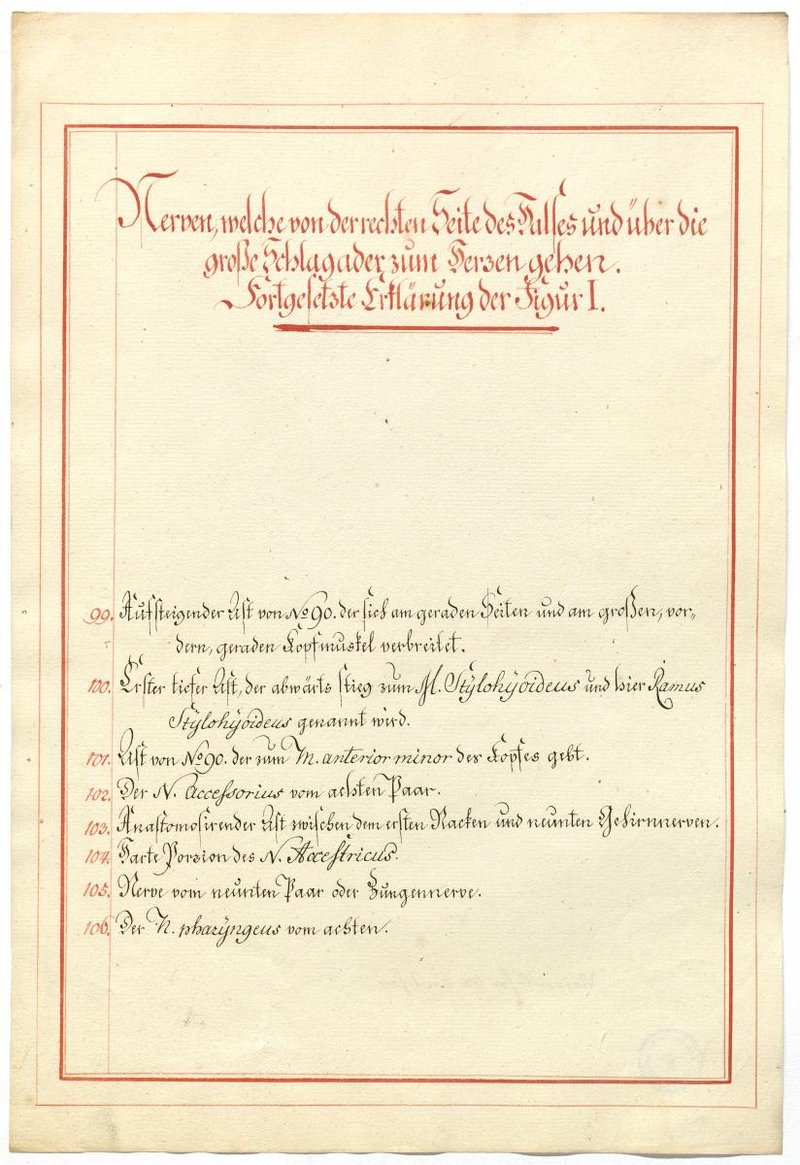 Nerven, welche von der rechten Seite des Halses und über die
große Schlagader zum Herzen gehen.
Fortgesetzte Erklärung der Figur I.
99. Aufsteigender Ast von No 90. der sich am geraden Seiten und am großen, vor-
dern, geraden Kopfmuskel verbreitet.
100. Erster tiefer Ast, der abwärts stieg zum M. Stÿlohÿoideus und hier Ramus
Stÿlohÿoideus genannt wird.
101. Ast von No 90. der zum M. anterior minor des Kopfes geht.
102. Der N. Accessorius vom achten Paar.
103. Anastomosirender Ast zwischen dem ersten Nacken und neunten Gehirnnerven.
104. Harte Porzion des N.
105. Nerve vom neunten Paar oder Zungennerve.
106. Der N. pharÿngeus vom achten.